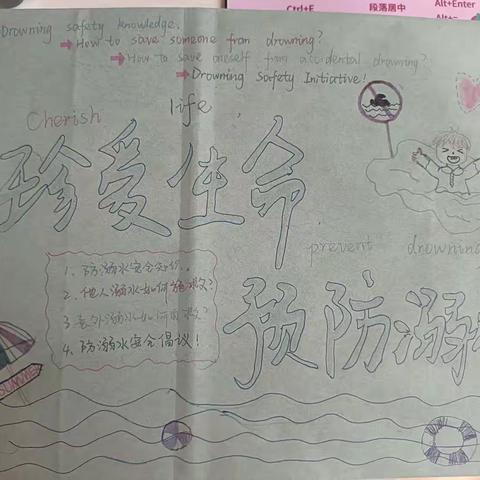 Ctrl+E 段落居中 Alt+Enter
Drowning safety knowledge.
How to save someone from drowning?
How to save oneself from accidental drowning?
Drowning Safety Initiative!
Cherish life
珍爱生命
prevent drowning
1、防溺水安全知识。
2、他人溺水如何施救?
3、意外溺水如何自救?
4、防溺水安全倡议!
预防溺水
SUMMER